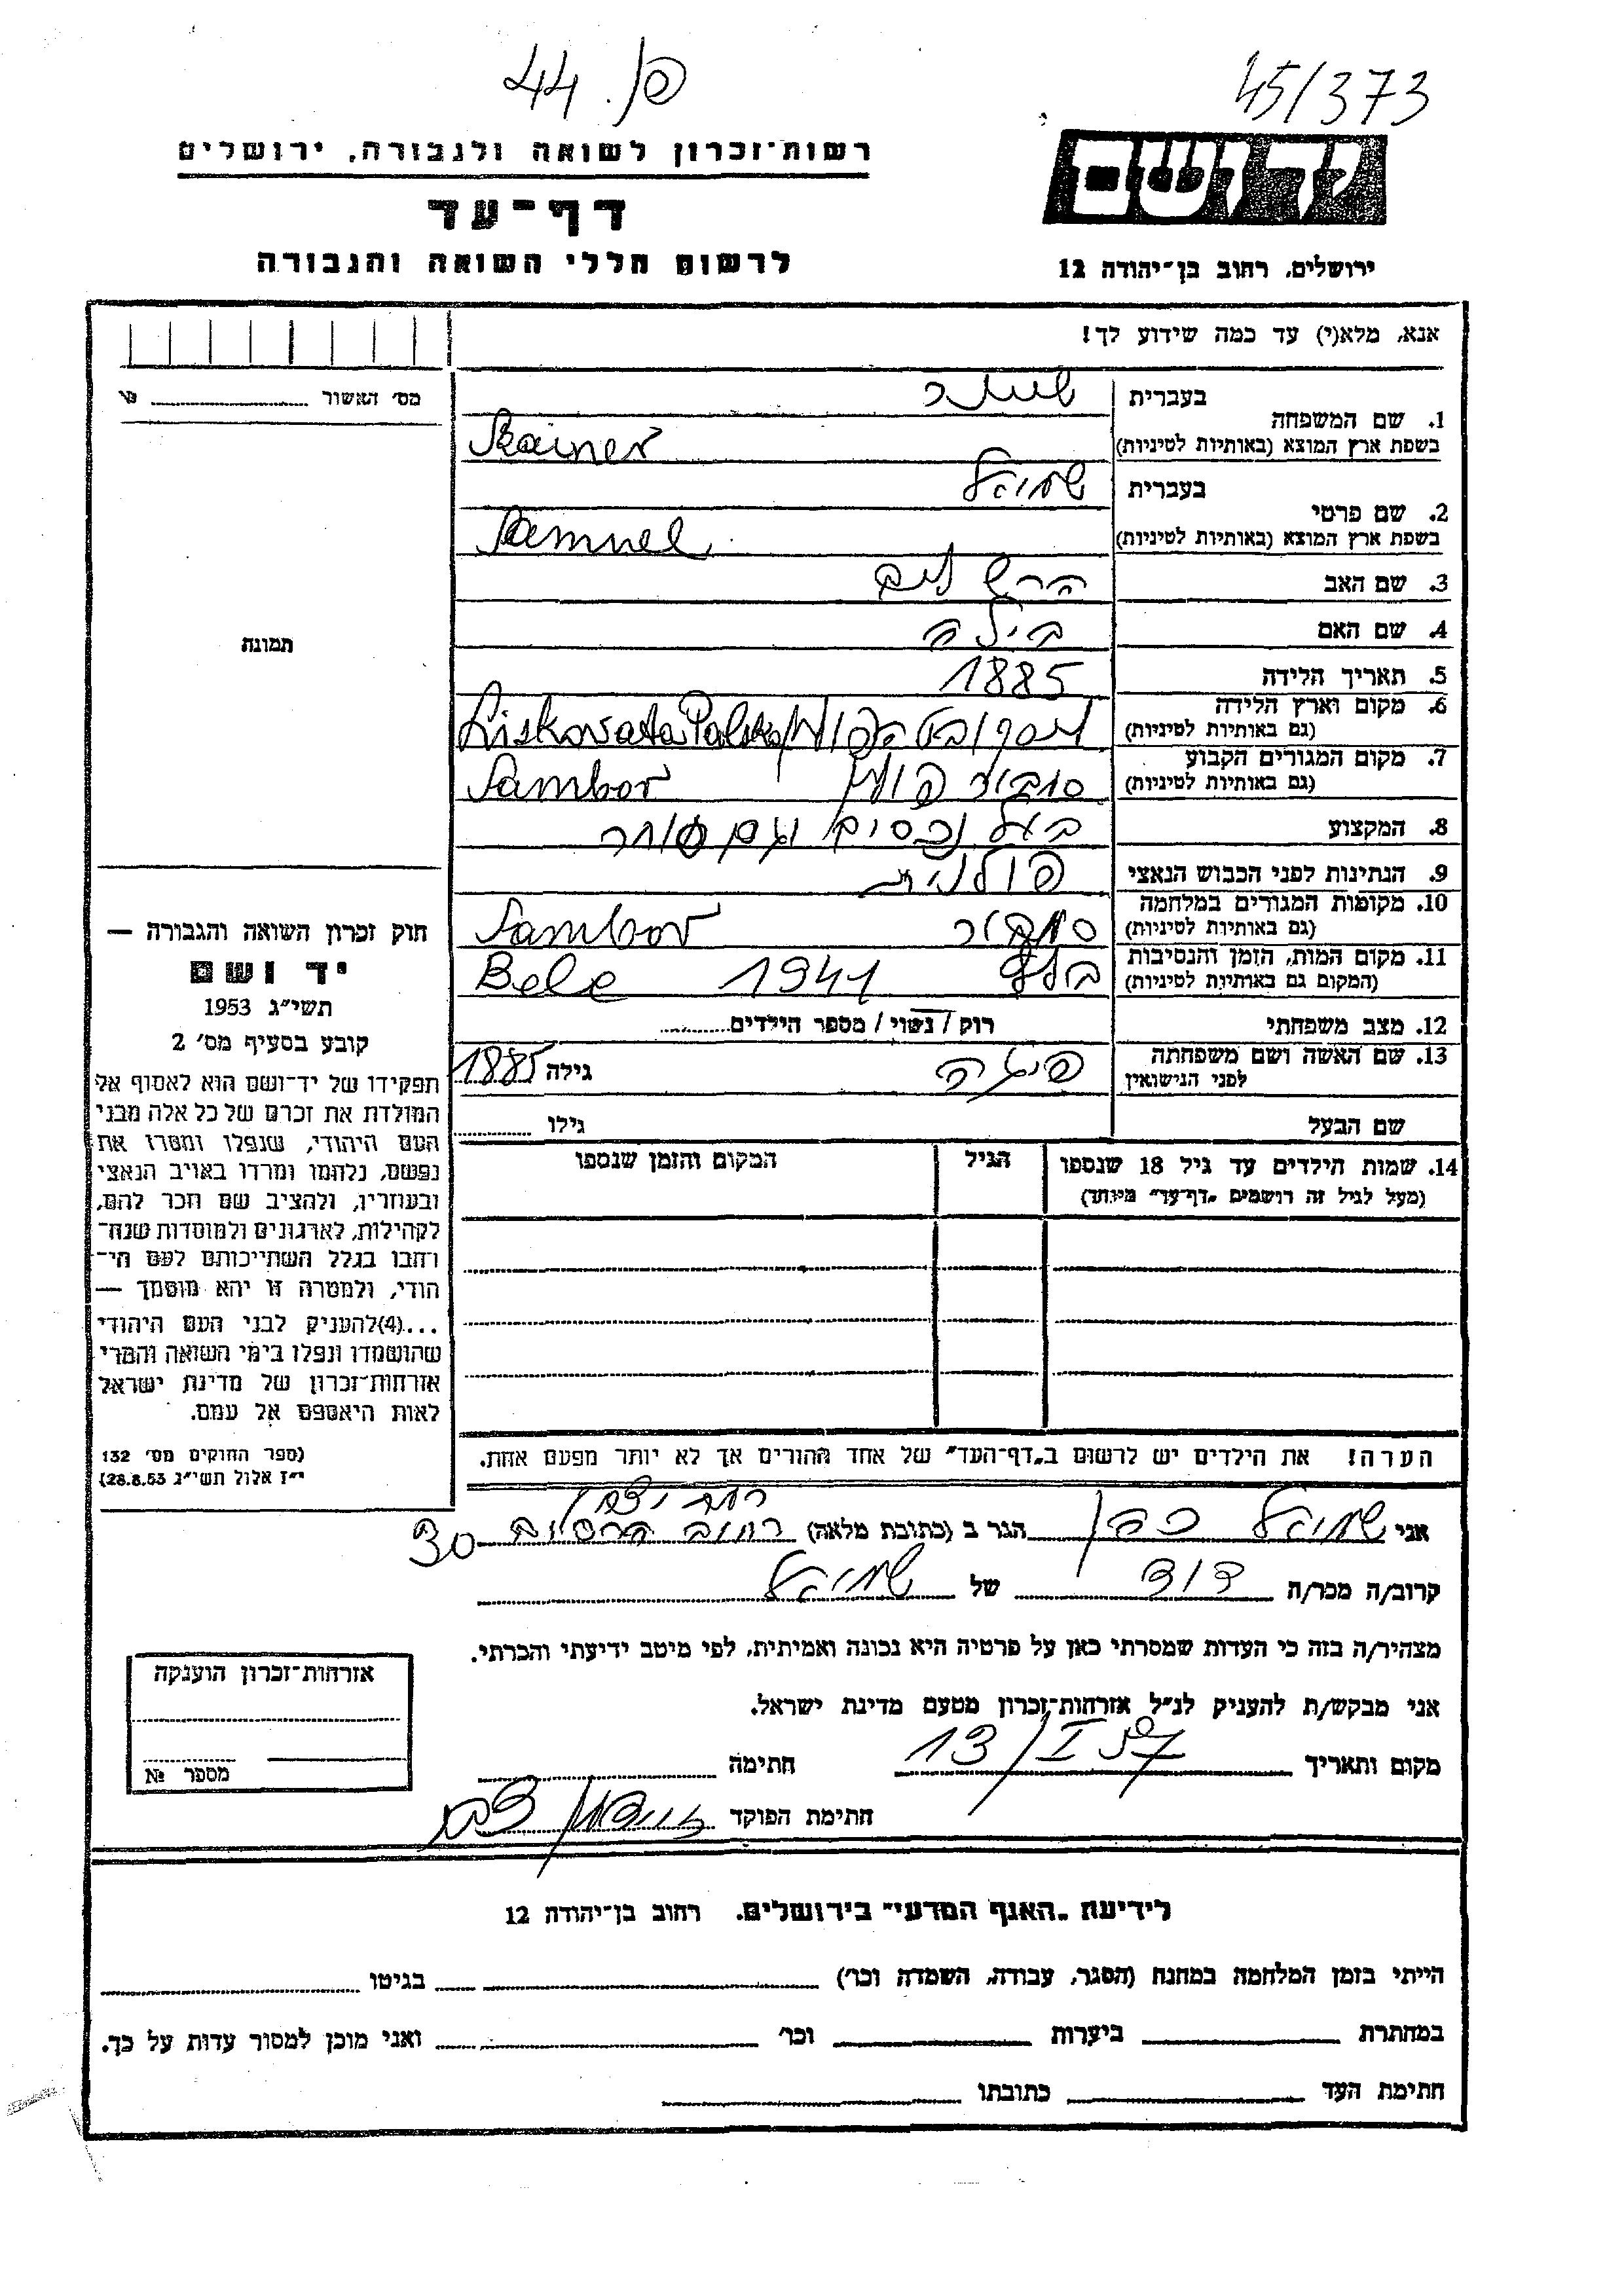 פל. 44
45/373
רשות־זכרון לשואה ולגבורה, ירושלים
דף־עד
לרשום חללי השואה והגבורה
יד ושם
ירושלים, רחוב בן־יהודה 12
אנא, מלא(י) עד כמה שידוע לך!
מס׳ האשור №
1. שם המשפחה
בעברית
בשפת ארץ המוצא (באותיות לטיניות) Stainer
2. שם פרטי
בעברית שמואל
בשפת ארץ המוצא (באותיות לטיניות) Samuel
3. שם האב הרש
4. שם האם בילה
5. תאריך הלידה 1885
6. מקום וארץ הלידה
(גם באותיות לטיניות) Liskovata Polska
7. מקום המגורים הקבוע
(גם באותיות לטיניות) סמבור פולין Sambor
8. המקצוע בעל נכסים וגם סוחר
9. הנתינות לפני הכבוש הנאצי פולנית
10. מקומות המגורים במלחמה
(גם באותיות לטיניות) סמבור Sambor
11. מקום המות, הזמן והנסיבות
(המקום גם באותיות לטיניות) 1941 Bele
12. מצב משפחתי רוק / נשוי / מספר הילדים
13. שם האשה ושם משפחתה
לפני הנישואין גילה 1885
שם הבעל גילו
14. שמות הילדים עד גיל 18 שנספו הגיל המקום והזמן שנספו
(מעל לגיל זה רושמים „דף־עד״ מיוחד)
תמונה
חוק זכרון השואה והגבורה —
יד ושם
תשי״ג 1953
קובע בסעיף מס׳ 2
תפקידו של יד־ושם הוא לאסוף אל
המולדת את זכרם של כל אלה מבני
העם היהודי, שנפלו ומסרו את
נפשם, נלחמו ומרדו באויב הנאצי
ובעוזריו, ולהציב שם וזכר להם,
לקהילות, לארגונים ולמוסדות שנח־
רחבו בגלל השתייכותם לעם הי־
הודי, ולמטרה זו יהא מוסמך —
...(4)להעניק לבני העם היהודי
שהושמדו ונפלו בימי השואה והמרי
אזרחות־זכרון של מדינת ישראל
לאות היאספם אל עמם.
(ספר החוקים מס׳ 132
י״ז אלול תשי״ג 28.8.53)
הערה! את הילדים יש לרשום ב„דף־העד״ של אחד ההורים אך לא יותר מפעם אחת.
אני שמואל כהן הגר ב (כתובת מלאה) רחוב 30
קרוב/ה מכר/ה דוד של שמואל
מצהיר/ה בזה כי העדות שמסרתי כאן על פרטיה היא נכונה ואמיתית, לפי מיטב ידיעתי והכרתי.
אני מבקש/ת להעניק לנ״ל אזרחות־זכרון מטעם מדינת ישראל.
מקום ותאריך 13/I 57 חתימה
חתימת הפוקד
אזרחות־זכרון הוענקה
מספר №
לידיעת „האגף המדעי״ בירושלים. רחוב בן־יהודה 12
הייתי בזמן המלחמה במחנח (הסגר, עבודה, השמדה וכו׳) בגיטו
במחתרת ביערות וכו׳ ואני מוכן למסור עדות על כך.
חתימת העד כתובתו